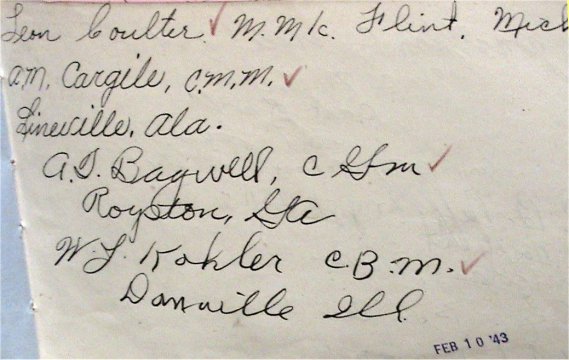 Leon Coulter. M.M 1c. Flint, Mich
A.M. Cargile, C.M.M.
Lineville, Ala.
A.T. Bagwell, C GM
Royston, Ga
W.L. Kohler C.B.M.
Danville Ill.
FEB 10 '43